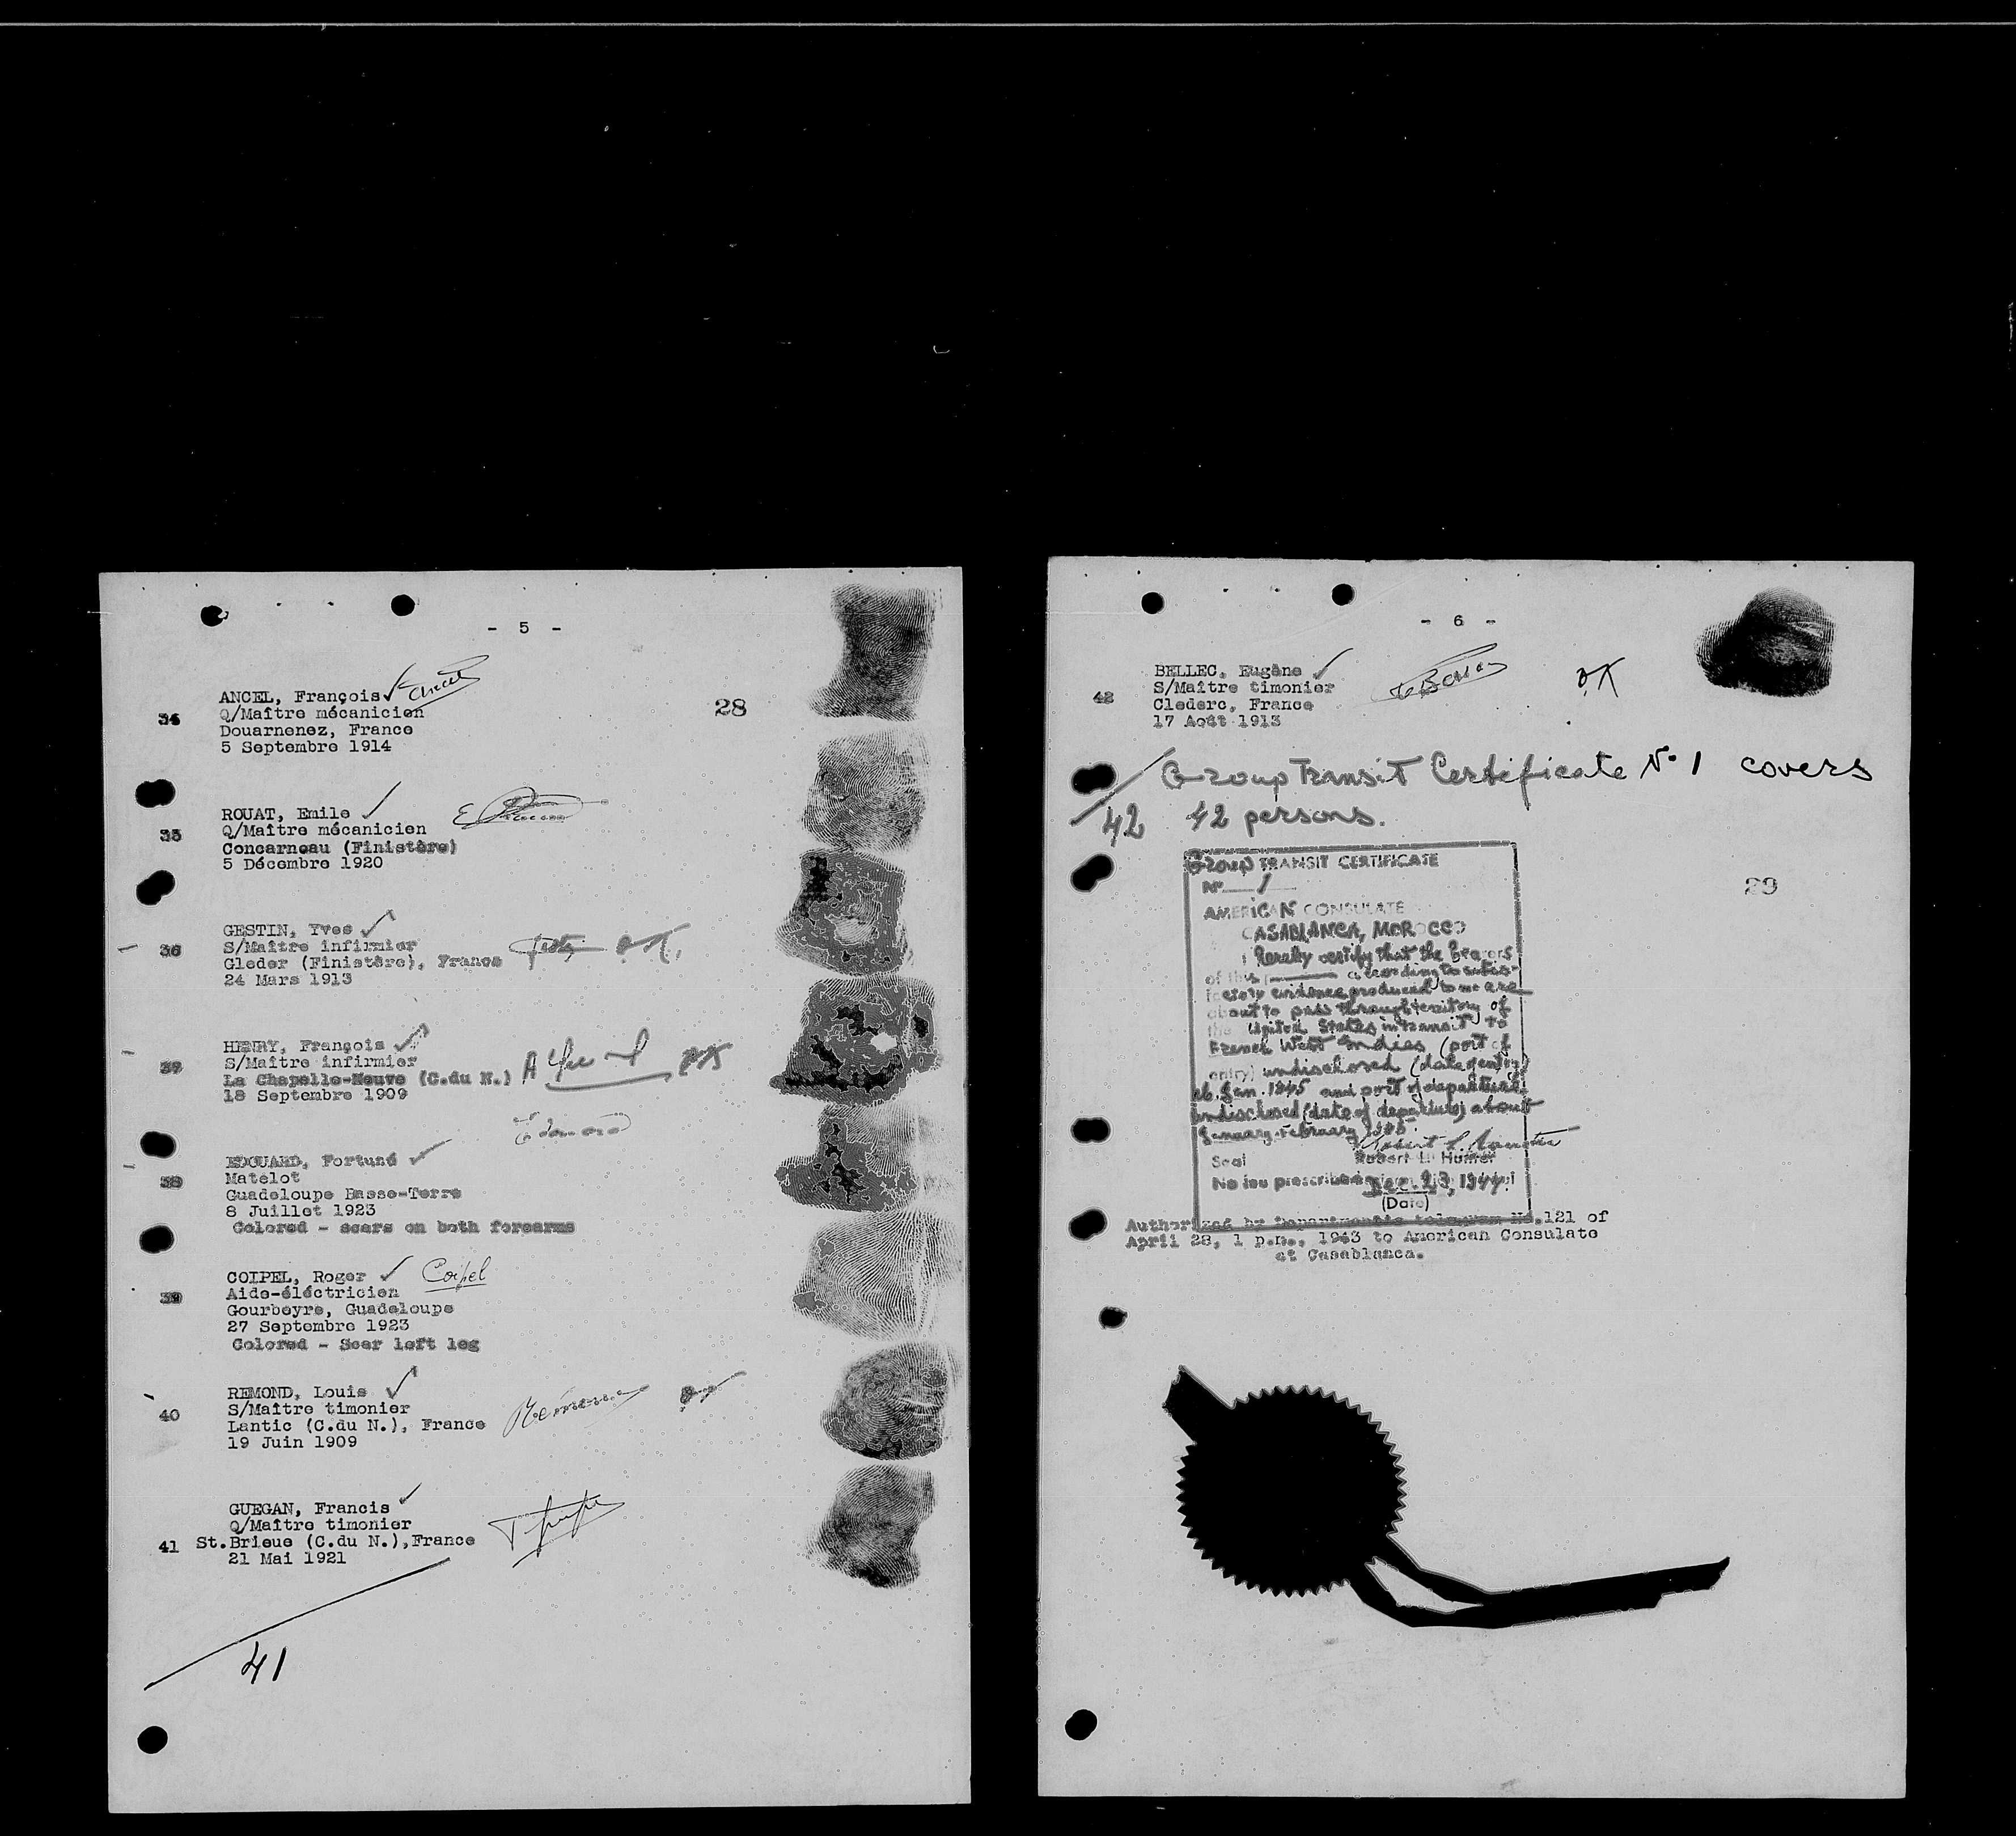 - 5 -
28
34
ANCEL, François
Ancel
Q/Maître mécanicien
Douarnenez, France
5 Septembre 1914
35
ROUAT, Emile
Q/Maître mécanicien
Concarneau (Finistère)
5 Décembre 1920
36
GESTIN, Yves
S/Maître infirmier
Gleder (Finistère), France
24 Mars 1913
37
HENRY, François
S/Maître infirmier
La Chapelle-Neuve (C.du N.)
18 Septembre 1909
38
EDOUARD, Fortuné
Matelot
Guadeloupe Basse-Terre
8 Juillet 1923
Colored - scars on both forearms
39
COIPEL, Roger
Coipel
Aide-éléctricien
Gourbeyre, Guadeloupe
27 Septembre 1923
Colored - Scar left leg
40
REMOND, Louis
S/Maître timonier
Lantic (C.du N.), France
19 Juin 1909
41
GUEGAN, Francis
Q/Maître timonier
St.Brieue (C.du N.),France
21 Mai 1921
41
- 6 -
42
BELLEC, Eugène
S/Maître timonier
Clederc, France
17 Août 1913
OK
Group Transit Certificate No 1 covers
42 42 persons.
29
Group TRANSIT CERTIFICATE
No 1
AMERICAN CONSULATE
CASABLANCA, MOROCCO
I hereby certify that the bearers
of this according to satis-
factory evidence produced to me are
about to pass through territory of
the United States in transit to
French West Indies (port of
entry) undisclosed (date of entry)
ab. Jan. 1945 and port of departure
undisclosed (date of departure) about
January-February 1945.
Seal Robert L. Hunter
No fee prescribed Dec. 23, 1944
(Date)
Authorized by Department's telegram No.121 of
April 28, 1 p.m., 1943 to American Consulate
at Casablanca.